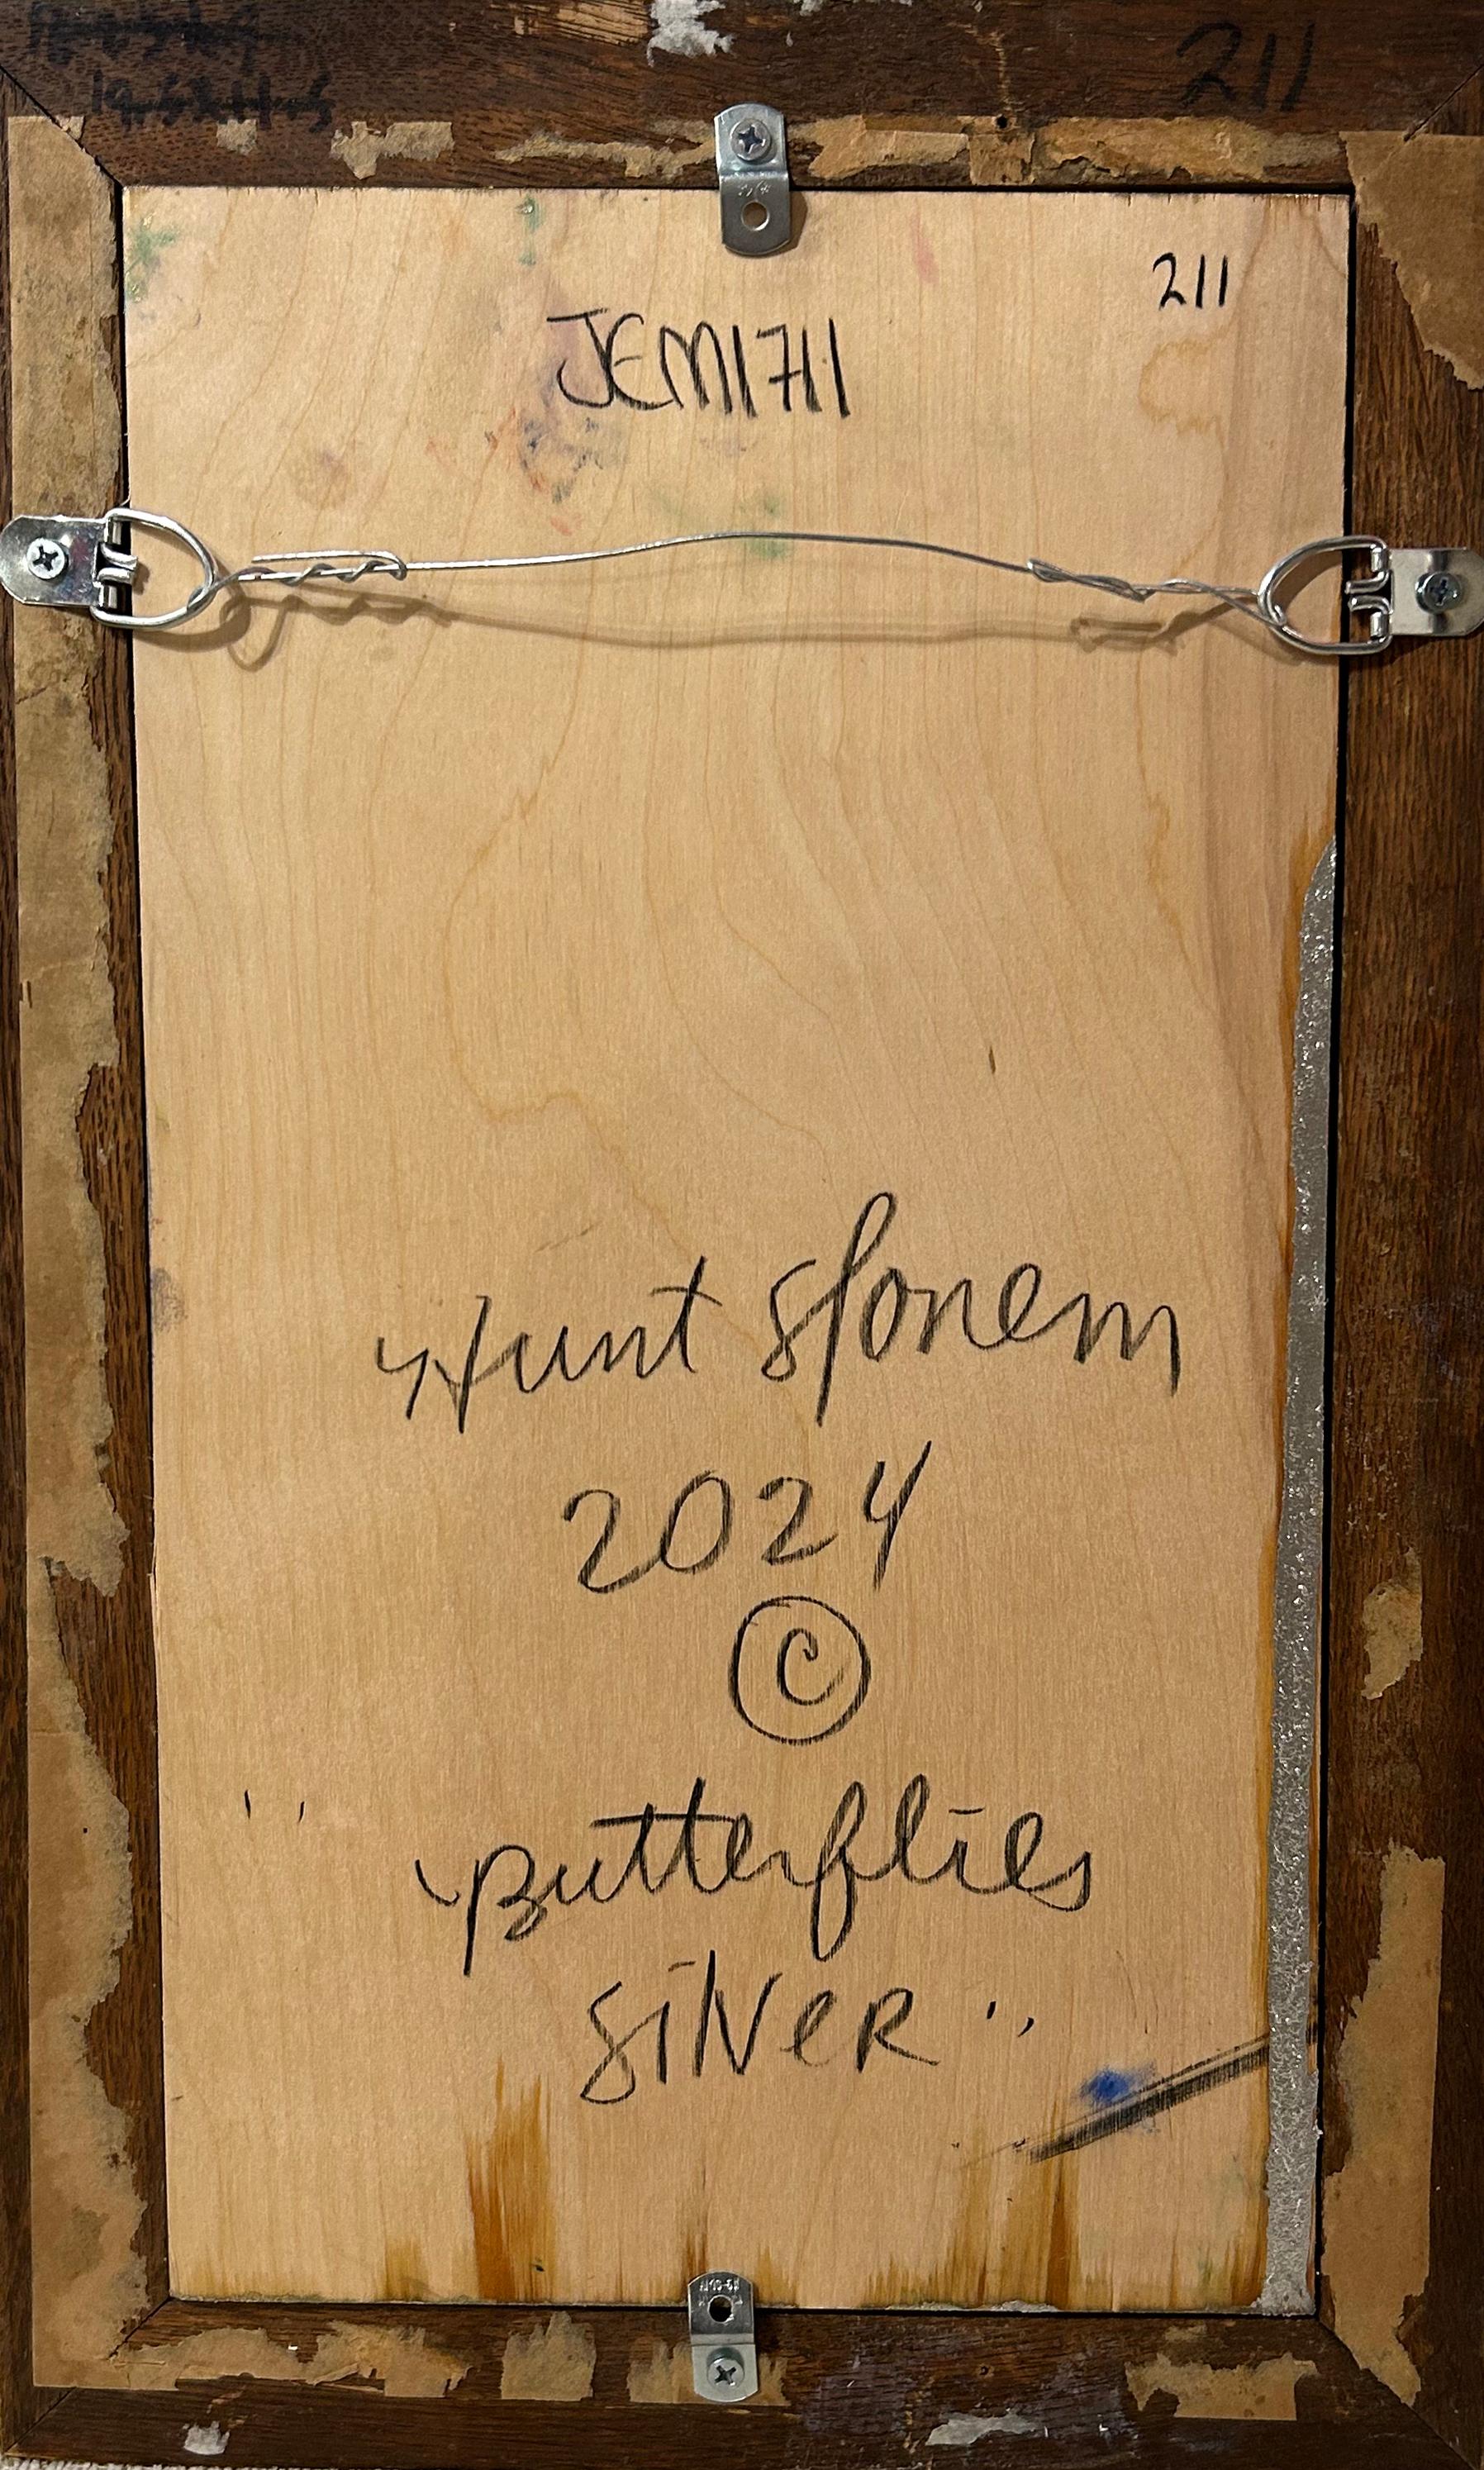 211
211
JEM1711
Hunt Slonem
2024
©
"Butterflies
Silver"